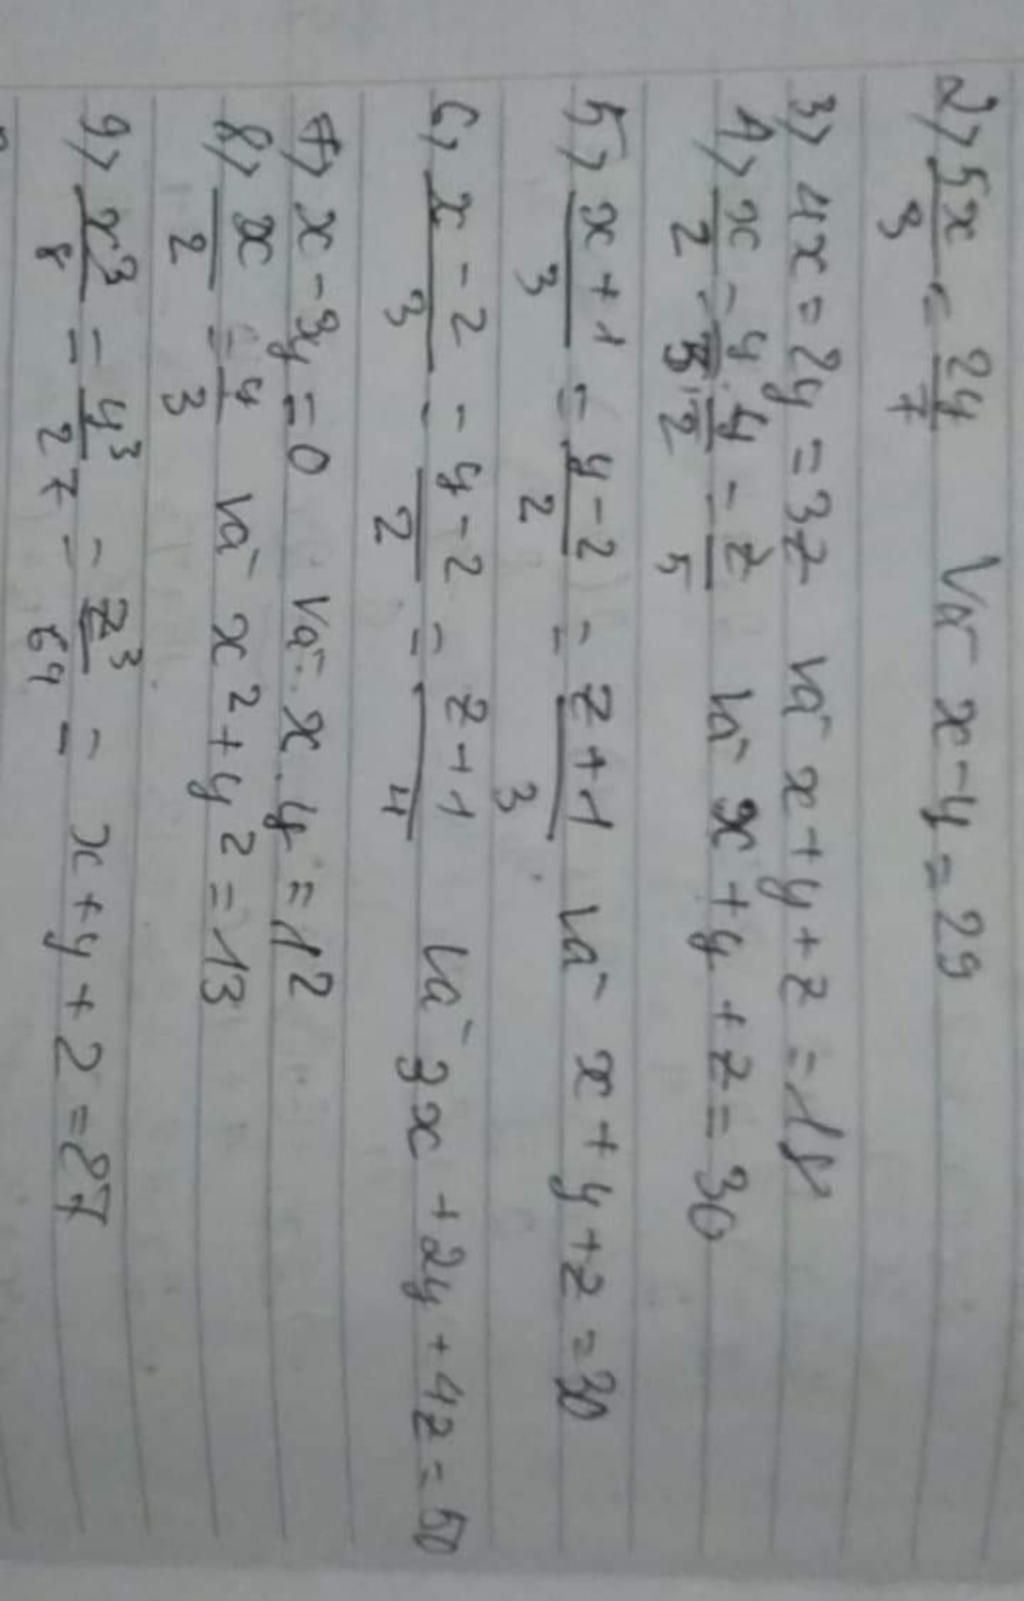 2) 5x/3 = 2y/7 Và x - y = 29
3) 4x = 2y = 3z Và x + y + z = 18
4) x/2 = y/3; y/2 = z/5 Và x + y + z = 30
5) x + 1/3 = y - 2/2 = z + 1/3 Và x + y + z = 30
6) x - 2/3 = y - 2/2 = z + 1/4 Và 3x + 2y + 4z = 50
7) x - 3y = 0 Và x.y = 12
8) x/2 = y/3 Và x² + y² = 13
9) x³/8 = y³/27 = z³/64 = x + y + 2 = 27